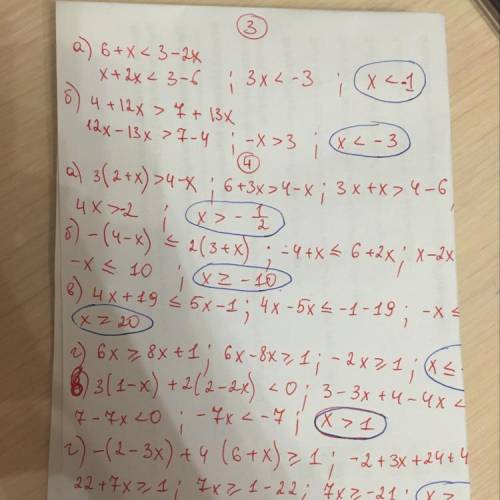 3
а) 6+x < 3-2x
x+2x < 3-6 ; 3x < -3 ; x < -1
б) 4+12x > 7+13x
12x-13x > 7-4 ; -x > 3 ; x < -3
4
а) 3(2+x) > 4-x ; 6+3x > 4-x ; 3x+x > 4-6 ;
4x > -2 ; x > - 1/2
б) -(4-x) ≤ 2(3+x) ; -4+x ≤ 6+2x ; x-2x
-x ≤ 10 ; x ≥ -10
в) 4x+19 ≤ 5x-1 ; 4x-5x ≤ -1-19 ; -x ≤
x ≥ 20
г) 6x ≥ 8x+1 ; 6x-8x ≥ 1 ; -2x ≥ 1 ; x ≤ -
в) 3(1-x)+2(2-2x) < 0 ; 3-3x+4-4x <
7-7x < 0 ; -7x < -7 ; x > 1
г) -(2-3x)+4(6+x) ≥ 1 ; -2+3x+24+4
22+7x ≥ 1 ; 7x ≥ 1-22 ; 7x ≥ -21 ; x ≥